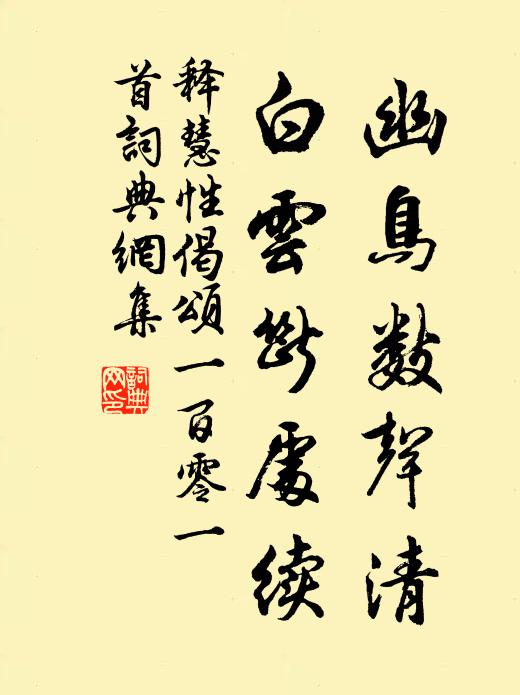 幽鳥數聲清
白雲斷處续
释慧性偈頌一百零一
首詞典網集
詞典網印